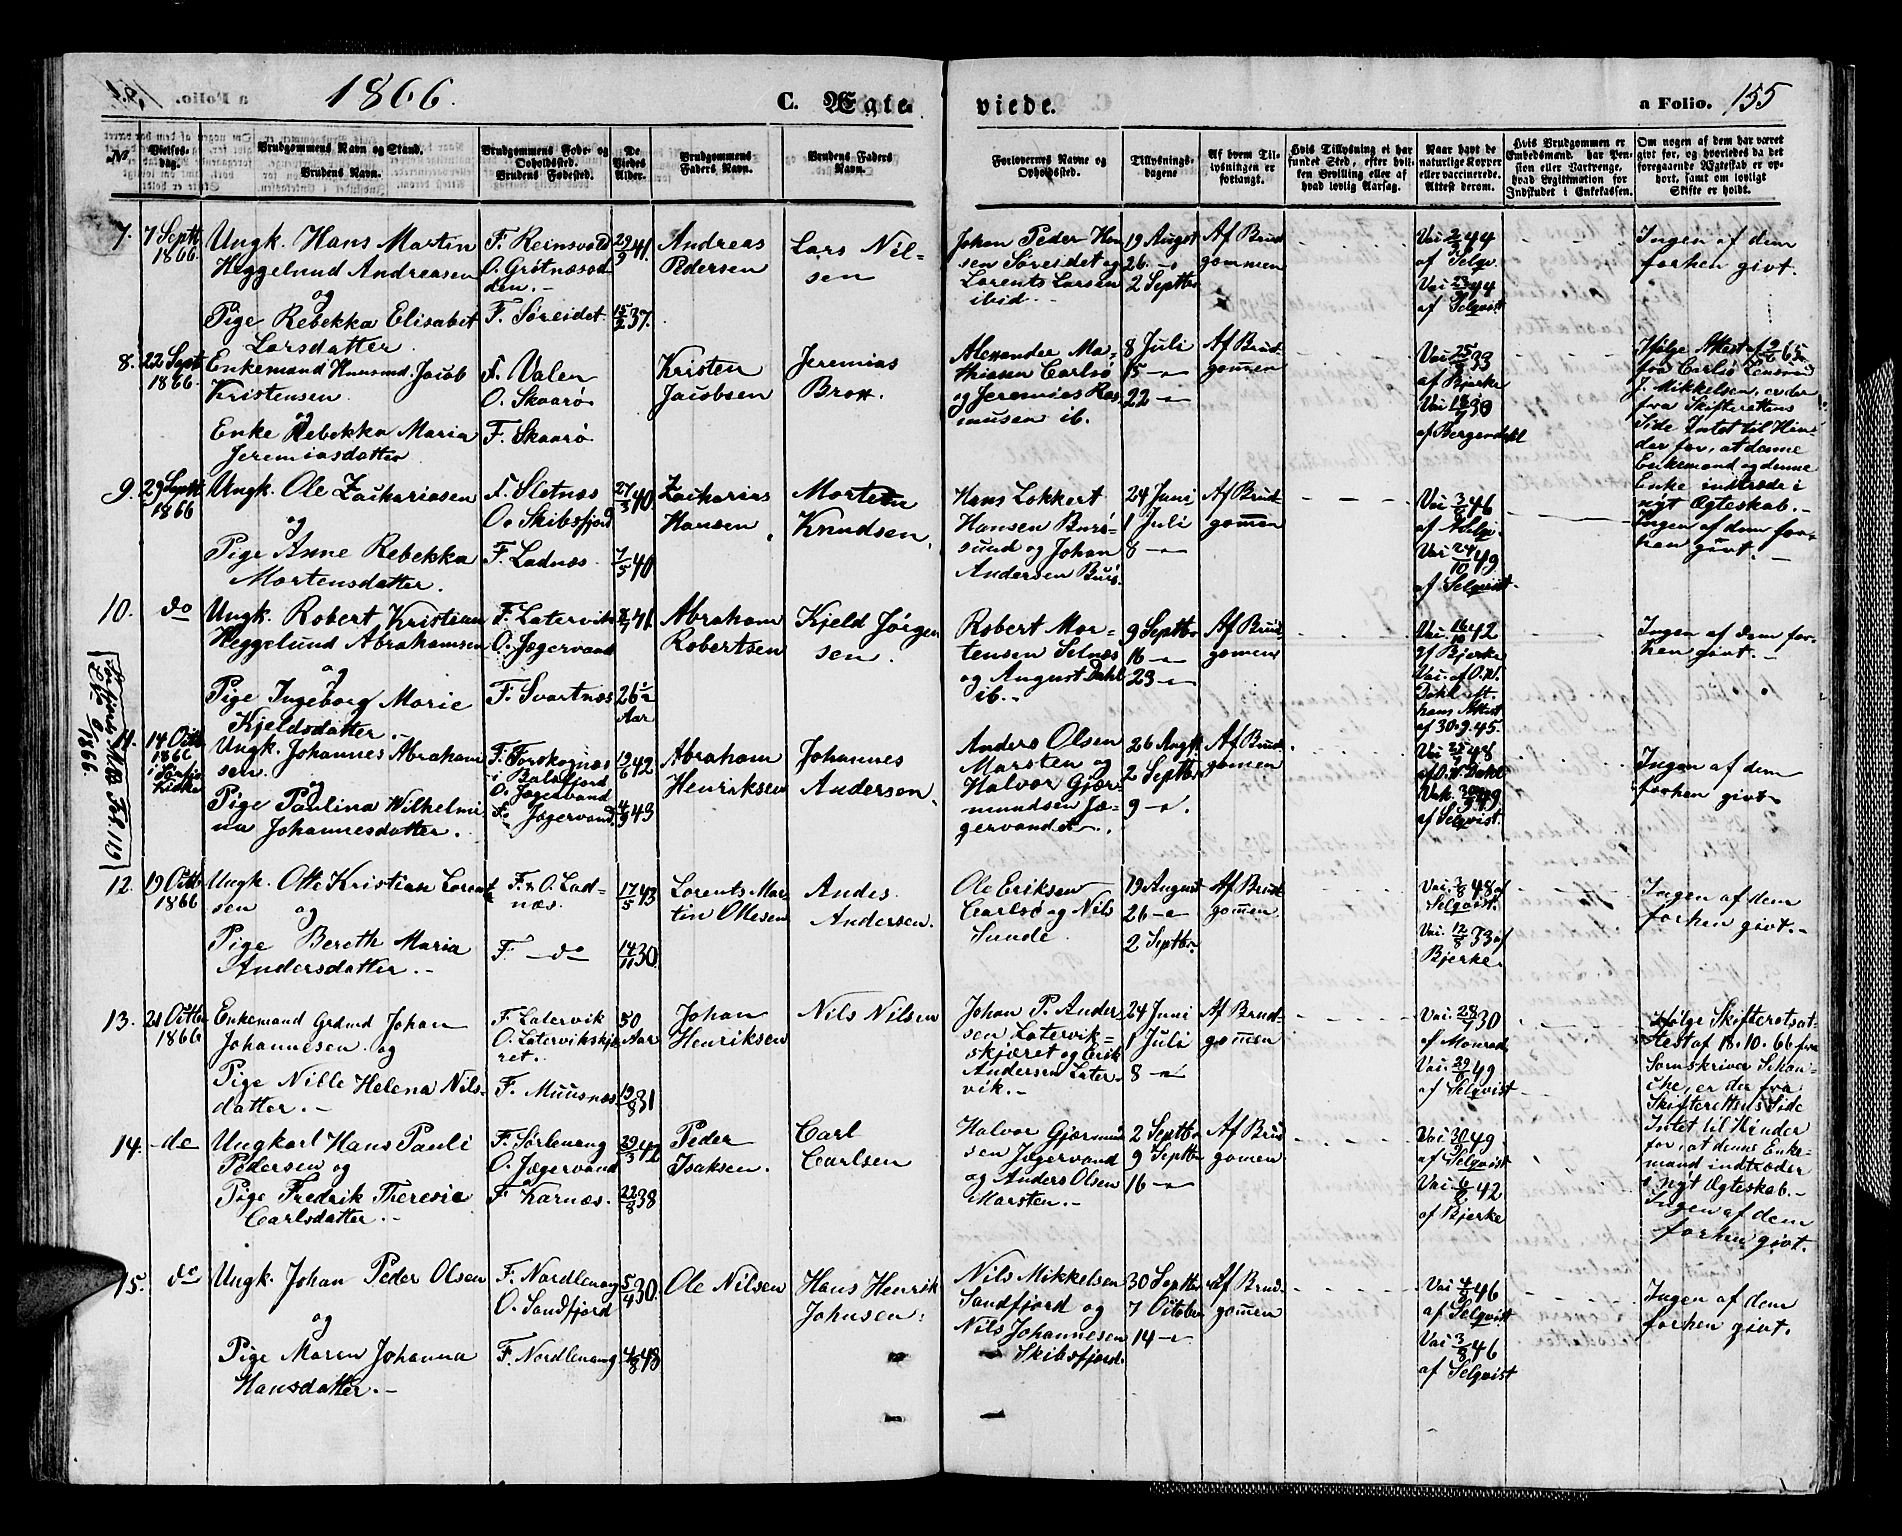 1866.
C. Ægte
viede.
a Folio. 155
No
Vielses-
dag.
Brudgommens Navn og Stand.
Brudens Navn.
Brudgommens Føde- og
Opholdssted.
Brudens Fødested.
De
Viedes
Alder.
Brudgommens
Faders Navn.
Brudens Faders
Navn.
Forlovernes Navne og
Opholdssted.
Tillysnings-
dagene
Af hvem Til-
lysningen er
forlangt.
Hvis Tillysning ei har
fundet Sted, efter hvil-
ken Bevilling eller af
hvad lovlig Aarsag.
Naar havt de
naturlige Kopper
eller vaccinerede.
Attest derom.
Hvis Brudgommen er
Embedsmand, har Pen-
sion eller Vartpenge,
hvad Legitimation for
Indskudet i Enkekassen.
Om nogen af dem har været
givt før, og hvorledes da det
foregaaende Ægteskab er op-
hørt, samt om lovligt
Skifte er holdt.
7.
7 Septb
1866.
Ungk. Hans Martin
Heggelund Andreasen
og
Pige Rebekka Elisabet
Larsdatter.
F. Reinsvold
O. Grøtnæsod
den.-
F. Søreidet.
29/9 41.
15/2 37.
Andreas
Pedersen
Lars Nil-
sen
Johan Peder Han
sen Søreidet og
Lorents Larsen
ibid.
19 August
26. -"-
2 Septbr
Af Brud
gommen
Vai 2/3 44
af Selqv.
Vai 23/3 44
af Selqvist
Ingen af dem
forhen givt.
8.
22 Sept
1866.
Enkemand Huusmd. Jacob
Kristensen.
og
Enke Rebekka Maria
Jeremiasdatter
F. Valen
O. Skaarø
F. Skaarø
Kristen
Jacobsen
Jeremias
Brox.
Alexander Ma-
thiesen Carlsø
og Jeremias Ras
musen ib.
8 Juli
15 -"-
22 -"-
Af Brud-
gommen
Vai 25/3 33
af Bjerke
af Bergendahl
Ifølge Attest af 2/6 65.
fra Carlsø Lensmd
J. Mikkelsen, er der
fra Skifterettens
Side Intet til Hin-
der for, at denne
Enkemand og denne
Enke indtræde i
nyt Ægteskab.-
9.
29 Septb
1866
Ungk. Ole Zachariasen
og
Pige Anne Rebekka
Mortensdatter.
F. Sletnæs
O. Skibsfjord
F. Ladnæs.
27/3 40.
7/5 40
Zacharias
Hansen.
Morten
Knudsen.
Hans Lokkert
Hansen Burø-
sund og Johan
Andersen Burs.
24 Juni
1 Juli
8 -"-
Af Brud-
gommen
Vai 3/8 46
af Selqv.
Vai 24/10 49.
af Selqvist.
Ingen af dem for-
hen givt.-
10.
do
Ungk. Robert Kristian
Heggelund Abrahamsen
og
Pige Ingeborg Marie
Kjeldsdatter.
F. Latervik
O. Jægervand
F. Svartnæs
8/7 41
26½
Aar
Abraham
Robertsen
Kjeld Jørgen
sen.
Robert Mor-
tensen Selnæs
og August Dahl
ib.-
9 Septbr
16 -"-
23 -"-
Af Brud-
gommen
Vai. 16/10 42
af Bjerke
Vai. af O.W.
Dahl Att.
hans Attest
af 30.9.45.
Ingen af dem for-
hen givt.-
11.
14 Octb
1866
Forhen Min. Fol. 119
1866.
Ungk. Johannes Abraham
sen.
og
Pige Paulina Wilhelmi
na Johannesdatter.
F. Forskognæs
i Balsfjord
O. Jægervand
F. Jægervand.
19/6 42
4/9 43
Abraham
Henriksen
Johannes
Andersen.
Anders Olsen
Marsten og
Halvor Gjær-
mundsen Jæ-
gervandet.
26 Augst
2 Septbr
9 -"-
Af Brud-
gommen
Vai 25/7 48
af O. W. Dahl
Vak. 30/9 49
af Selqvist.
Ingen af dem
forhen givt.
12.
19 Octb
1866
Ungk. Otte Kristian Lorent
sen
og
Pige Bereth Maria
Andersdatter.-
F. & O. Lad-
næs.
F. -do-
17/5 43
14/11 30.
Lorents Mar-
tin Ottesen
Andes.
Andersen.
Ole Eriksen
Carlsø og Nils
Sunde.
19 August
26 -"-
2 Septbr
Af Brud-
gommen.
Vai. 3/8 48 af
Selqvist.
Vai. 12/8 33 af
Bjerke.
Ingen af dem
forhen givt.-
13.
21 Octbr
1866
Enkemand Grdmd Johan
Johannesen. og
Pige Nille Helena Nils-
datter.-
F. Latervik
O. Latervikskjæ
ret.-
F. Muusnæs.
50
Aar
19/8 31
Johan
Henriksen
Nils Nilsen
Johan P. Ander
sen Latervik-
skjæret og Erik
Andersen Later-
vik.-
24 Juni
1 Juli
8 -"-
Af Brud-
gommen
Vai. 28/7 30
af Monrad
Vai. 29/6 49.
af Selqvist
Ifølge Skifteretsat-
test af 18.10.66 fra
Sornskriver Schan-
che, er der fra
Skifterettens Side
Intet til Hinder
for, at denne Enke-
mand indtræder
i nyt Ægteskab.-
14.
-do
Ungkarl Hans Pauli
Pedersen og
Pige Fredrik Theresie
Carlsdatter.-
F. Sørlenang
O. Jægervand
F. Karnæs.
29/3 42
22/8 38
Peder
Isaksen.
Carl
Carlsen
Halvor Gjærmund
sen Jægervand
og Anders Olsen
Marsten.-
2 Septbr
9 Septbr
16 -"-
Af Brud
gommen.
Vai 30/9 49.
af Selqvist
Vai 6/2 42
af Bjerke
Ingen af dem
forhen givt.
15.
do
Ungk. Johan Peder Olsen
og
Pige Maren Johanna
Hansdatter.-
F. Nordlenang
O. Sandfjord
F. Nordlenang
5/4 30.
4/8 48
Ole Nilsen
Hans Henrik
Johnsen.
Nils Mikkelsen
Sandfjord og
Nils Johannesen
Skibsfjord.
30 Septbr
7 October
14 -"-
Af Brud-
gommen
Vai 4/8 46
af Selqvist
Vai 3/8 46
af Selqvist
Ingen af dem
forhen givt.